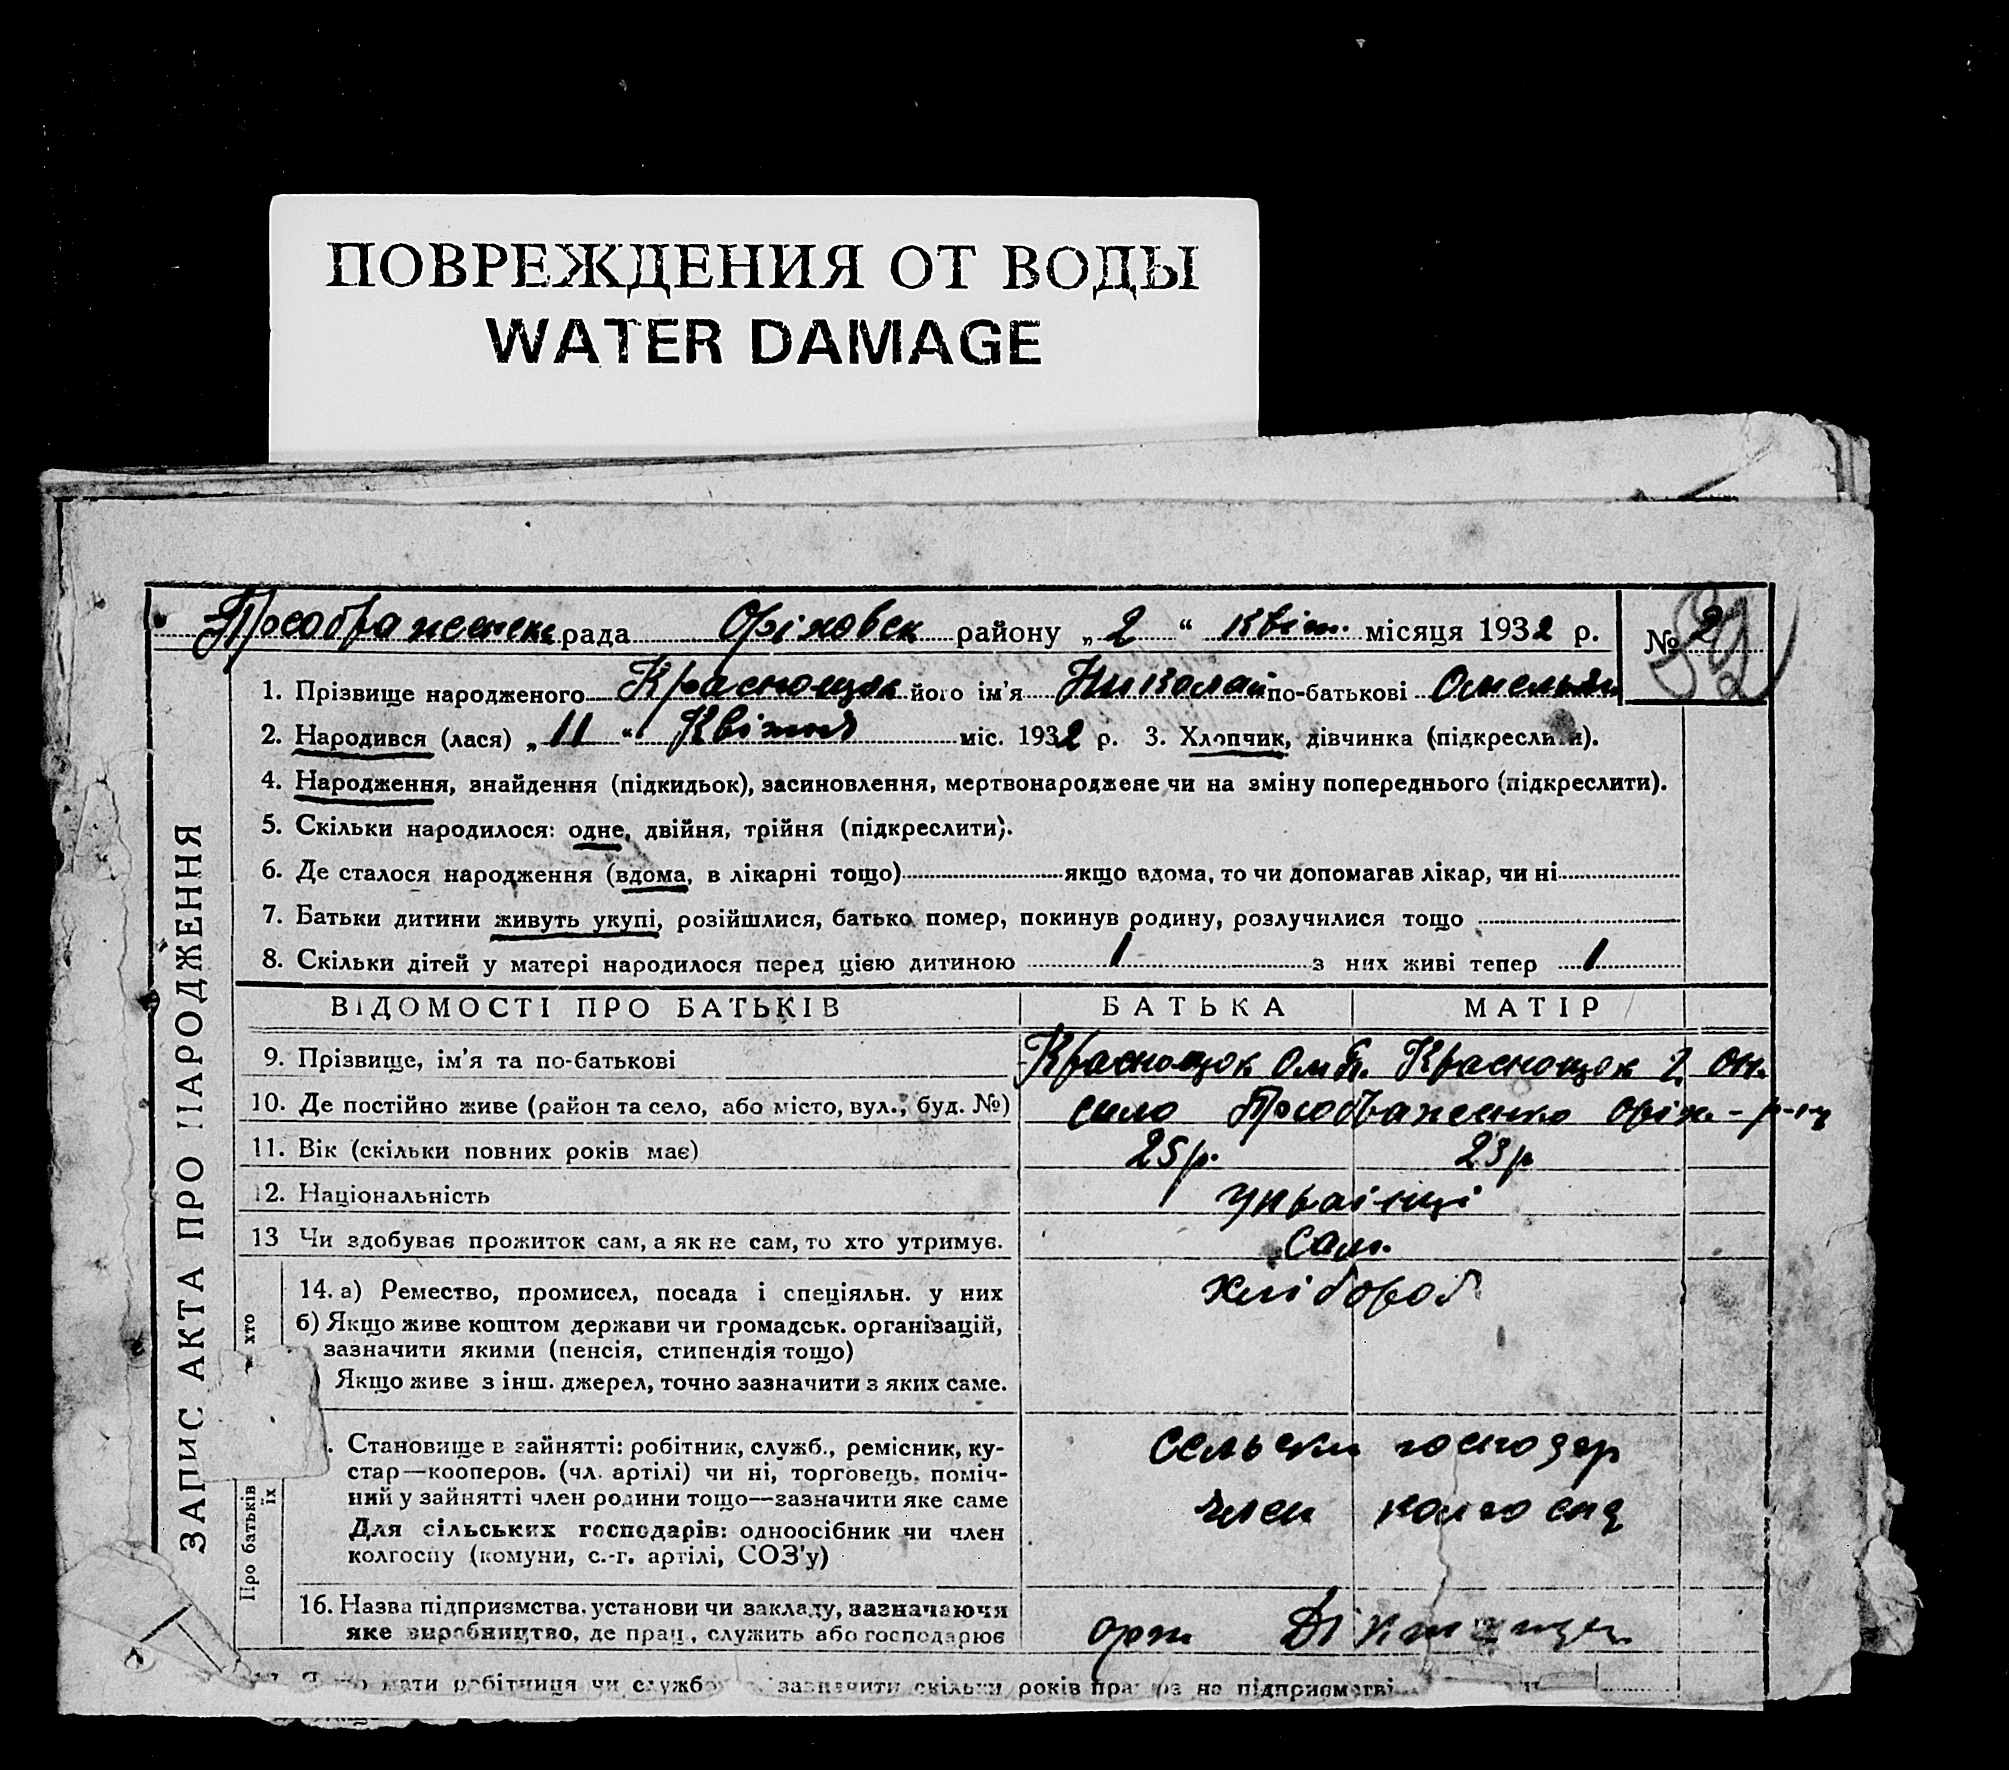 ПОВРЕЖДЕНИЯ ОТ ВОДЫ
WATER DAMAGE
Преображенська рада Оріховськ району „2“ квіт. місяця 1932 р. № 2
1. Прізвище народженого Краснощок його ім'я Николай по-батькові Омельян
2. Народився (лася) „11“ Квітня міс. 1932 р. 3. Хлопчик, дівчинка (підкреслити).
4. Народження, знайдення (підкидьок), засиновлення, мертвонароджене чи на зміну попереднього (підкреслити).
5. Скільки народилося: одне, двійня, трійня (підкреслити).
6. Де сталося народження (вдома, в лікарні тощо) якщо вдома, то чи допомагав лікар, чи ні
7. Батьки дитини живуть укупі, розійшлися, батько помер, покинув родину, розлучилися тощо
8. Скільки дітей у матері народилося перед цією дитиною 1 з них живі тепер 1
ЗАПИС АКТА ПРО НАРОДЖЕННЯ
ВІДОМОСТІ ПРО БАТЬКІВ БАТЬКА МАТІР
9. Прізвище, ім'я та по-батькові Краснощок Ом. Краснощок
10. Де постійно живе (район та село, або місто, вул., буд. №) село Преображенка Оріх. - р-ну
11. Вік (скільки повних років має) 25 р. 23 р
12. Національність українці
13 Чи здобуває прожиток сам, а як не сам, то хто утримує. сам.
14. а) Ремество, промисел, посада і спеціяльн. у них хлібороб
б) Якщо живе коштом держави чи громадськ. організацій,
зазначити якими (пенсія, стипендія тощо)
Якщо живе з інш. джерел, точно зазначити з яких саме.
хто
Про батьків
їх
. Становище в зайнятті: робітник, служб., ремісник, ку-
стар—кооперов. (чл. артілі) чи ні, торговець, поміч-
ний у зайнятті член родини тощо—зазначити яке саме
Для сільських господарів: одноосібник чи член
колгоспу (комуни, с.-г. артілі, СОЗ'у)
сельски господар
член колгоспу
16. Назва підприємства, установи чи закладу, зазначаючи
яке виробництво, де прац., служить або господарює
мати робітниця чи службо зазначити скільки років працює на підприємстві